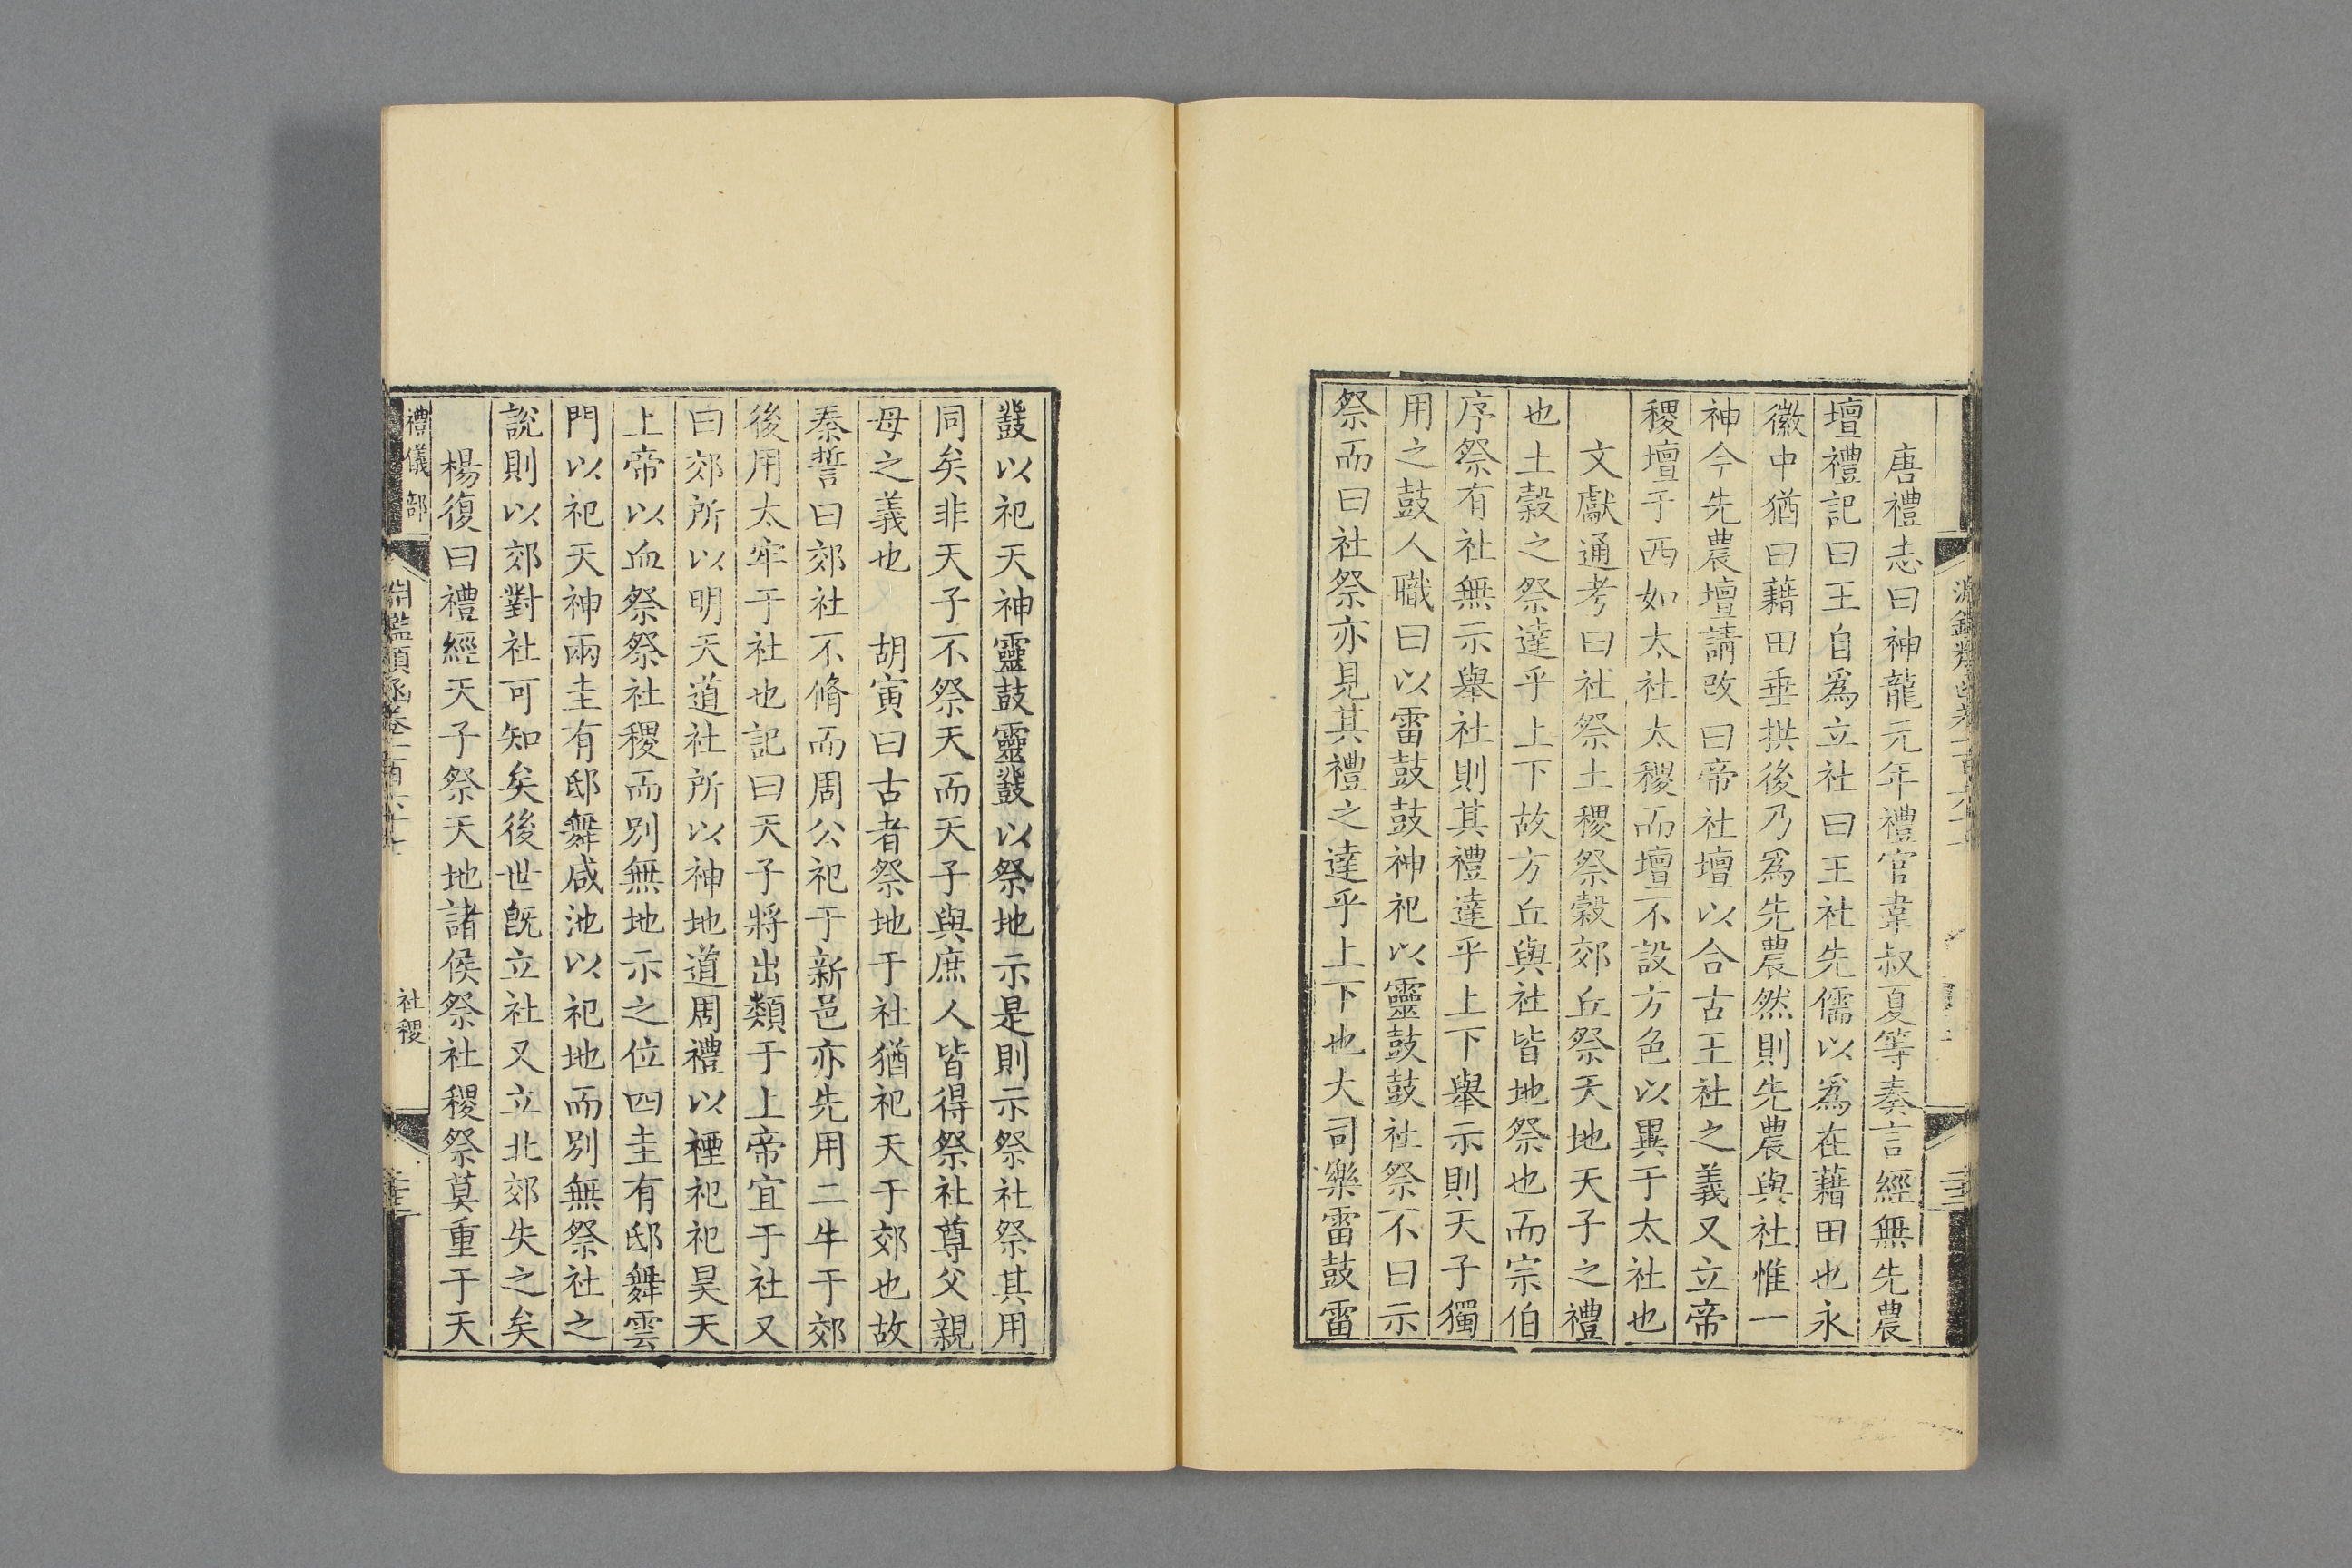 唐禮志曰神龍元年禮官韋叔夏等奏言經無先農
壇禮記曰王自爲立社曰王社先儒以爲在藉田也永
徽中猶曰藉田垂拱後乃爲先農然則先農與社惟一
神今先農壇請改曰帝社壇以合古王社之義又立帝
稷壇于西如太社太稷而壇不設方色以異于太社也
文獻通考曰社祭土稷祭穀郊丘祭天地天子之禮
也土穀之祭達乎上下故方丘與社皆地祭也而宗伯
序祭有社無示舉社則其禮達乎上下舉示則天子獨
用之鼓人職曰以雷鼓鼓神祀以靈鼓鼓社祭不曰示
祭而曰社祭亦見其禮之達乎上下也大司樂雷鼓雷
鼗以祀天神靈鼓靈鼗以祭地示是則示祭社祭其用
同矣非天子不祭天而天子與庶人皆得祭社尊父親
母之義也 胡寅曰古者祭地于社猶祀天于郊也故
泰誓曰郊社不脩而周公祀于新邑亦先用二牛于郊
後用太牢于社也記曰天子將出類于上帝宜于社又
曰郊所以明天道社所以神地道周禮以禋祀祀昊天
上帝以血祭祭社稷而别無地示之位四圭有邸舞雲
門以祀天神兩圭有邸舞咸池以祀地而别無祭社之
說則以郊對社可知矣後世旣立社又立北郊失之矣
楊復曰禮經天子祭天地諸侯祭社稷祭莫重于天
禮儀部
淵鑑類函卷一百六十
社稷